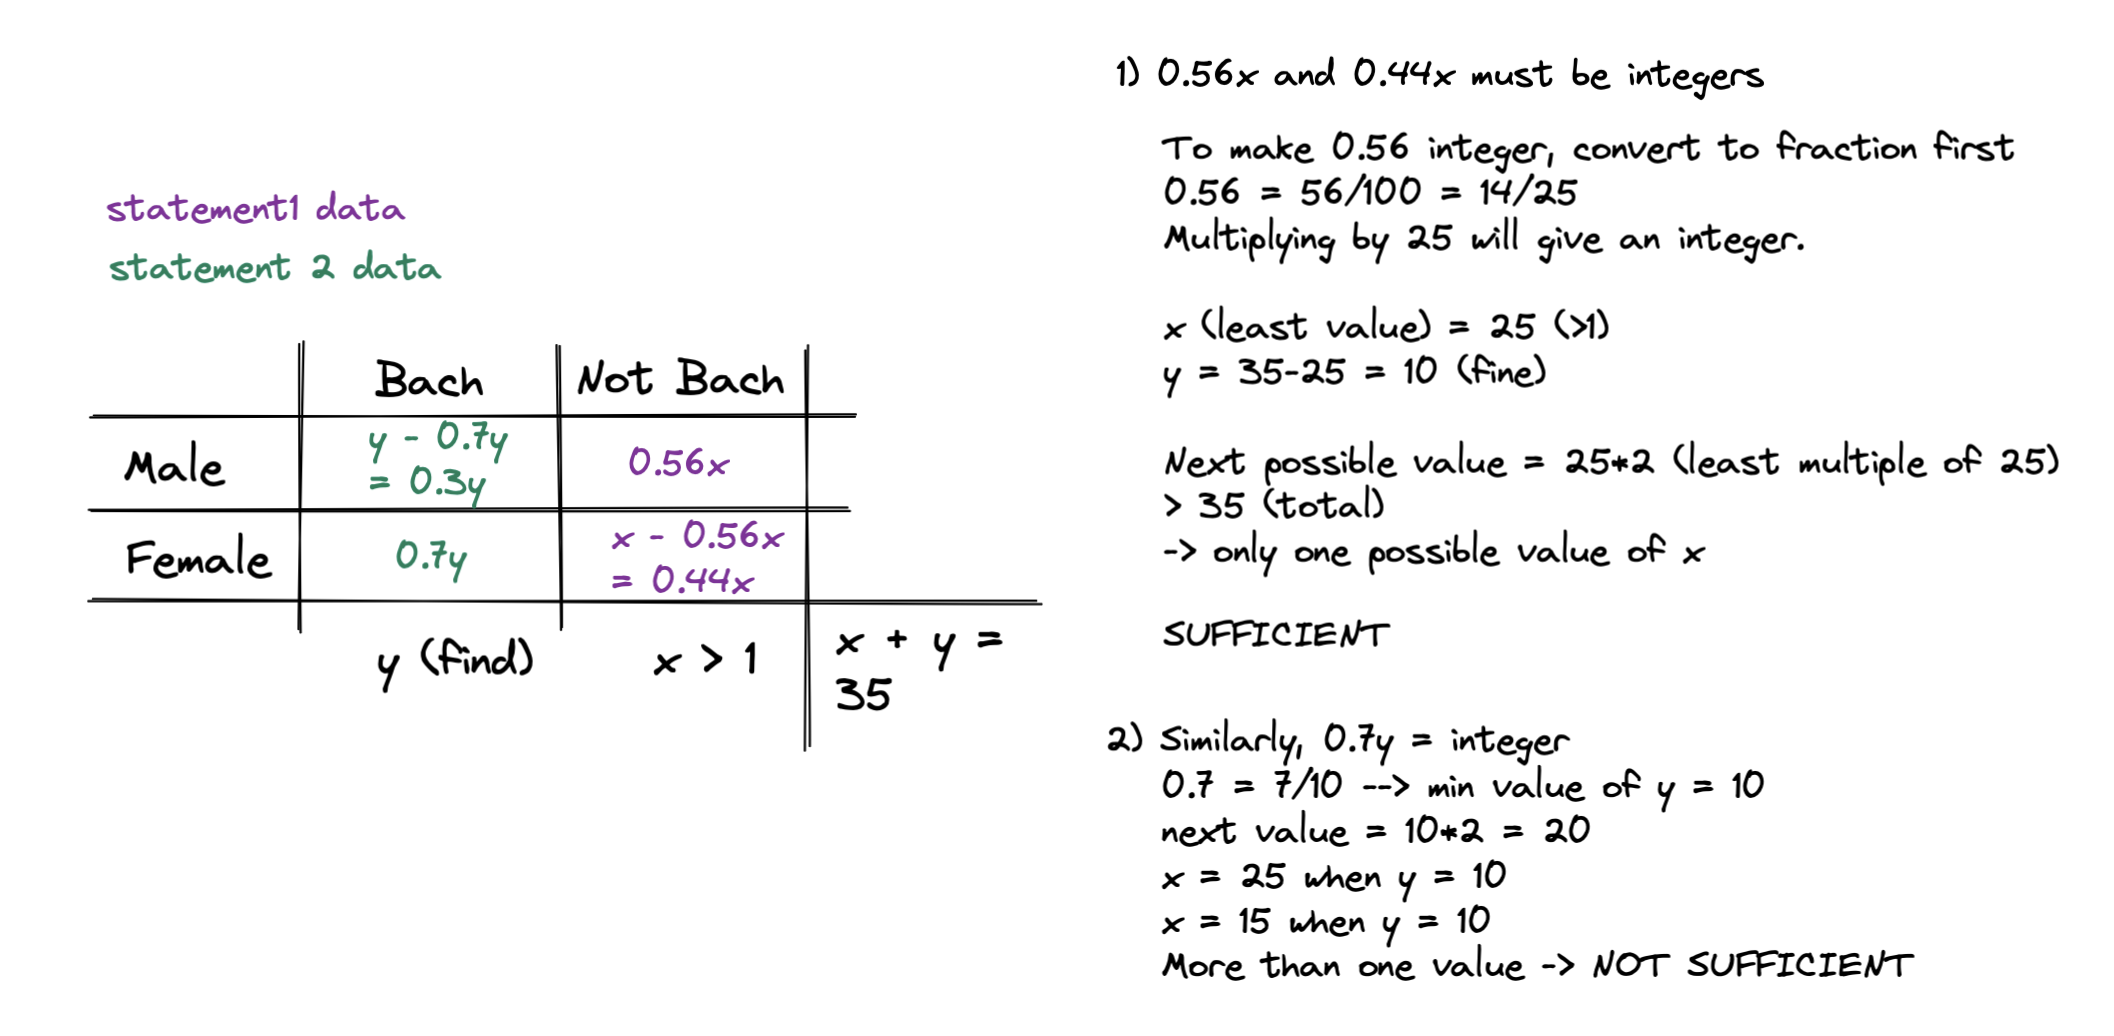 statement1 data
statement 2 data
Bach Not Bach
Male y - 0.7y = 0.3y 0.56x
Female 0.7y x - 0.56x = 0.44x
y (find) x > 1 x + y = 35
1) 0.56x and 0.44x must be integers
To make 0.56 integer, convert to fraction first
0.56 = 56/100 = 14/25
Multiplying by 25 will give an integer.
x (least value) = 25 (>1)
y = 35-25 = 10 (fine)
Next possible value = 25*2 (least multiple of 25)
> 35 (total)
-> only one possible value of x
SUFFICIENT
2) Similarly, 0.7y = integer
0.7 = 7/10 --> min value of y = 10
next value = 10*2 = 20
x = 25 when y = 10
x = 15 when y = 10
More than one value -> NOT SUFFICIENT